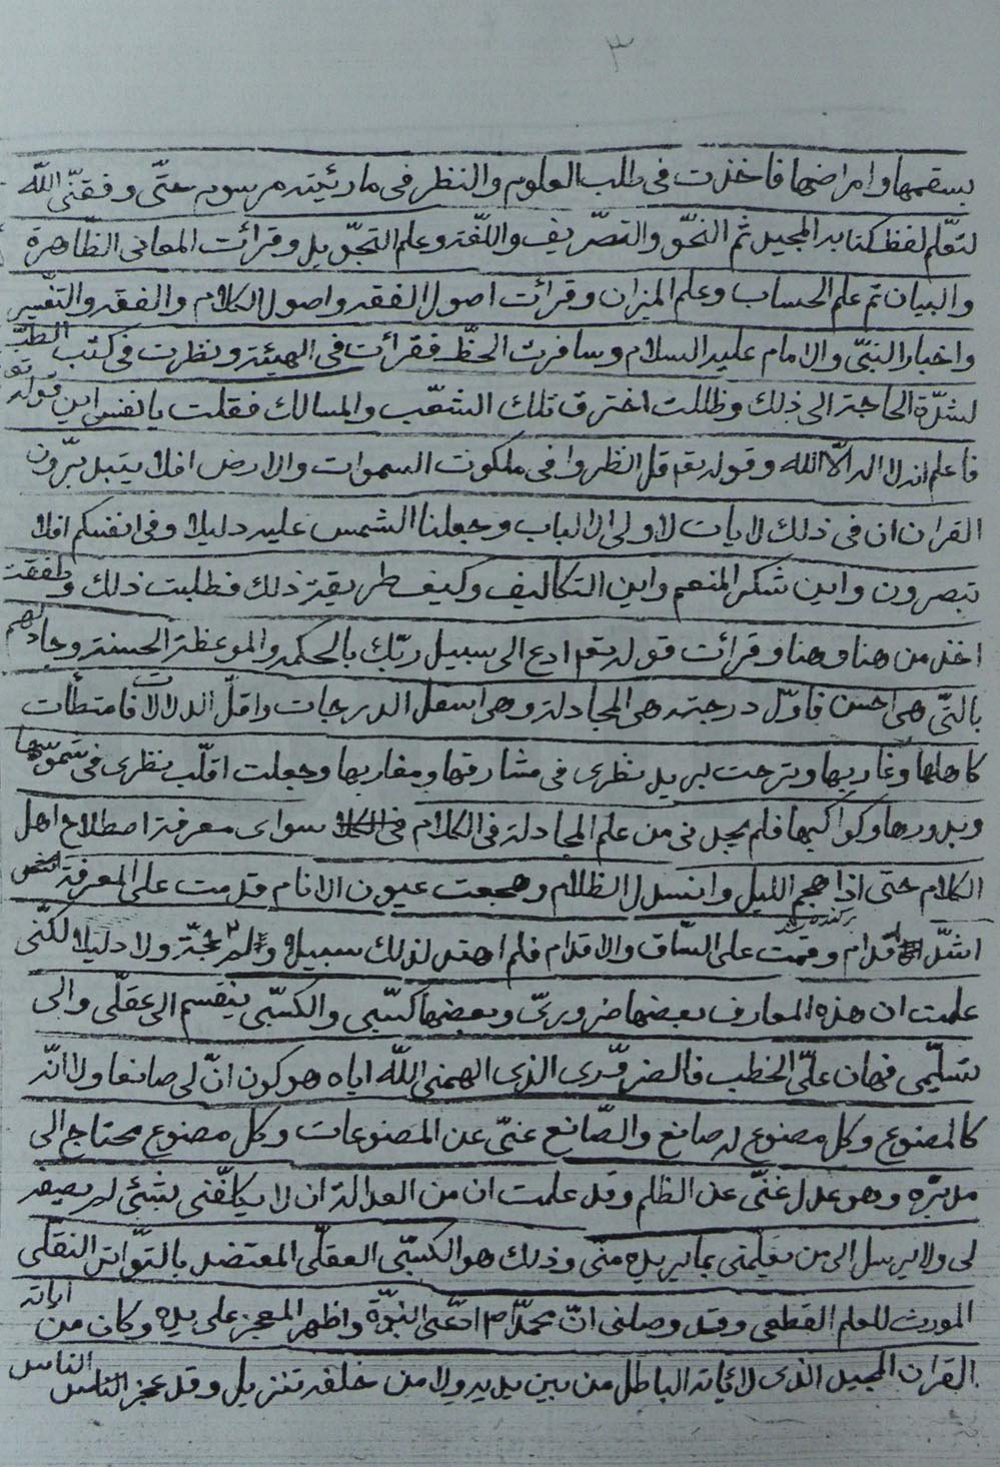 ٣
بسقمها وامراضها فاخذت فى طلب العلوم والنظر فى ما رئيته مرسوم حتّى وفقنّى اللّه
لتعّلم لفظ كتابه المجيد ثم النحّو والتصّريف واللّغة وعلم التجّويد وقرائت المعانى الظّاهرة
والبيان ثم علم الحساب وعلم الميزان وقرائت اصول الفقه واصول الكلام والفقه والتفّسير
واخبار النبّى والامام عليه السلام وسافرت الحظّ فقرائت فى الهيئة ونظرت فى كتب الطبّ
لشدّة الحاجة الى ذلك وظللت اخترق تلك الشعّب والمسالك فقلت يا نفس اين قوله تع
فاعلم انه لا اله الّا اللّه وقوله تعم قل انظروا فى ملكوت السموات والارض افلا يتدبّرون
القران ان فى ذلك لايات لاولى الالباب وجعلنا الشمس عليه دليلا وفى انفسكم افلا
تبصرون واين شكر المنعم واين التكاليف وكيف طريقة ذلك فطلبت ذلك وطفقت
اخذ من هنا وهنا وقرائت قوله تعم ادع الى سبيل ربّك بالحكمه والموعظة الحسنة وجادلهم
بالتّى هى احسن فاوّل درجته هى المجادلة وهى اسفل الدرجات واقلّ الدلالات فامتطأت
كاهلها وغاربها وترحت لبريد نظرى فى مشارقها ومغاربها وجعلت اقلّب نظرى فى شموسها
وبدورها وكواكبها فلم يجدنى من علم المجادلة فى الكلام سواى معرفة اصطلاح اهل
الكلام حتى اذا هجم الليل وانسدل الظلام وهجعت عيون الانام قدمت على المعرفة
اشدّ اقدام وقمت على السّاق والاقدام فلم اهتد لذلك سبيلا ولم حجّة ولا دليلا لكنّى
علمت ان هذه المعارف بعضها ضرورىّ وبعضها كسّبى والكسّبى ينقسم الى عقلّى والى
تسليّمى فهان علىّ الخطب فالضرّورى الذى الهمنى اللّه اياه هو كون انّ لى صانعا ولا انّه
كالمصنوع وكل مصنوع له صانع والصّانع غنىّ عن المصنوعات وكل مصنوع محتاج الى
مدبّره وهو عدل غنّى عن الظلم وقد علمت ان من العدالة ان لا يكلفّنى بشئى لم يصفه
لى ولا يرسل الى من يعلّمنى بما يريده منّى وذلك هو الكسّبى العقلّى المعتضد بالتوّاتر النقلى
المورث للعلم القطعى وقد وصلنى انّ محمدّا ص ادعّى النبوّة واظهر المعجز على يده وكان من اياته
القران المجيد الذى لا ياته الباطل من بين يديه ولا من خلفه تنزيل وقد عجز الناس